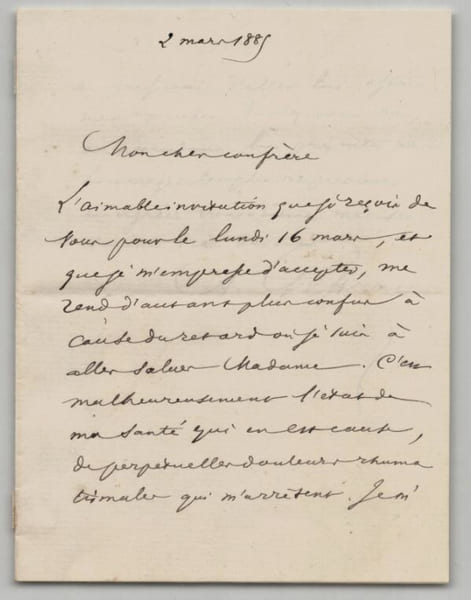 2 mars 1885
Mon cher confrère
L'aimable invitation que je reçois de
Vous pour le lundi 16 mars, et
que je m'empresse d'accepter, me
rend d'autant plus confus à
cause du retard où je suis à
aller saluer Madame. C'est
malheureusement l'état de
ma santé qui en est cause,
de perpetuelles douleurs rhuma
tismales qui m'arrêtent. Je m'